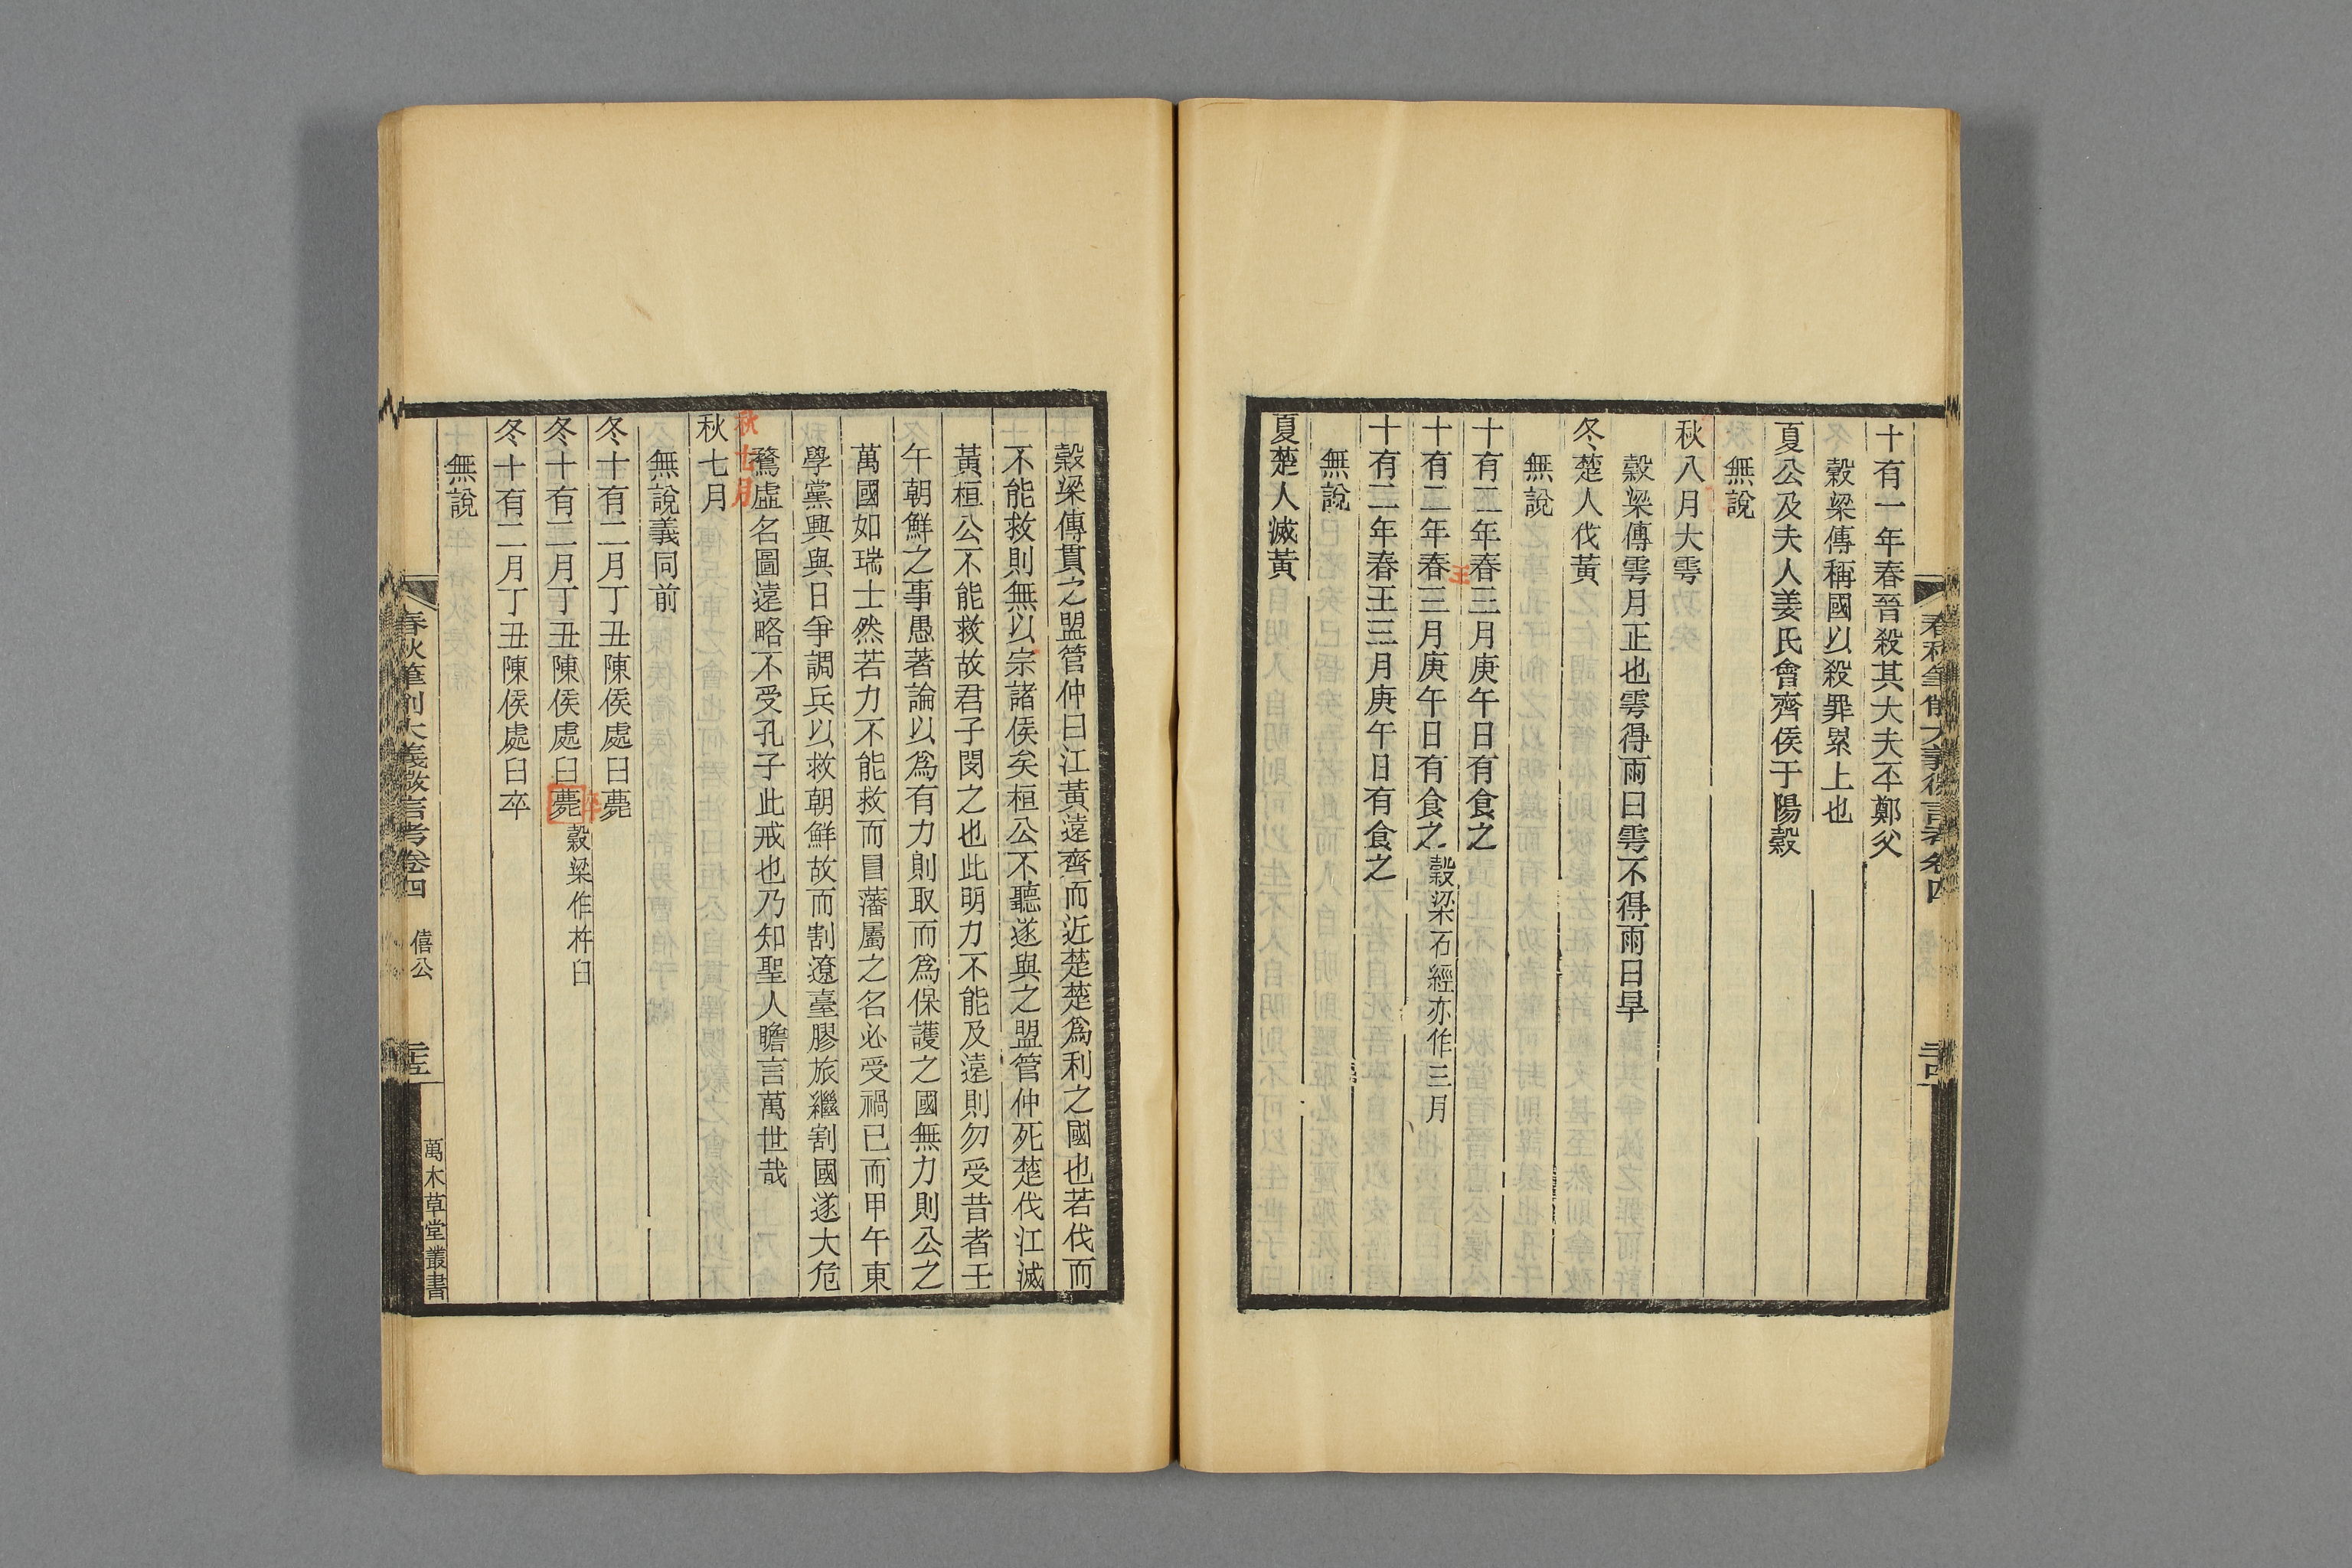 春秋筆削大義微言考卷四
十有一年春晉殺其大夫丕鄭父
穀梁傳稱國以殺罪累上也
夏公及夫人姜氏會齊侯于陽穀
無說
秋八月大雩
穀梁傳雩月正也雩得雨曰雩不得雨曰旱
冬楚人伐黃
無說
十有二年春三月庚午日有食之
王
十有二年春三月庚午日有食之 穀梁石經亦作三月
十有二年春王三月庚午日有食之
無說
夏楚人滅黃
穀梁傳貫之盟管仲曰江黃遠齊而近楚楚爲利之國也若伐而
不能救則無以宗諸侯矣桓公不聽遂與之盟管仲死楚伐江滅
黃桓公不能救故君子閔之也此明力不能及遠則勿受昔者壬
午朝鮮之事愚著論以爲有力則取而爲保護之國無力則公之
萬國如瑞士然若力不能救而冒藩屬之名必受禍已而甲午東
學黨興與日爭調兵以救朝鮮故而割遼臺膠旅繼割國遂大危
騖虛名圖遠略不受孔子此戒也乃知聖人瞻言萬世哉
秋七月
秋七月
無說義同前
冬十有二月丁丑陳侯處臼薨
卒
冬十有二月丁丑陳侯處臼薨 穀梁作杵臼
冬十有二月丁丑陳侯處臼卒
無說
春秋筆削大義微言考卷四 僖公 二十五 萬木草堂叢書